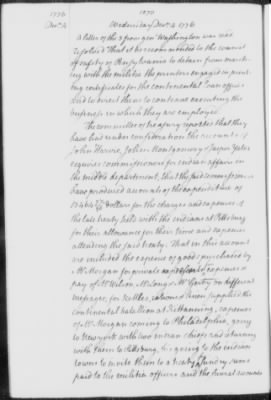 1776
Decr 4
1010
Wednesday Decr 4. 1776
A letter of the 3 from gen Washington was read
Resolved That it be recommended to the council
of safety of Pensylvania to detain from march-
ing with the militia the printers engaged in print-
ing certificates for the continental loan office
and to direct them to continue executing the
business in which they are employed.
The committee of treasury reported that they
have had under consideration the accounts of
John Harvie, John Montgomery & Jasper Yates
esquires commissioners for indian affairs in
the middle department, that the said commissioners
have produced accounts of the expenditure of
dollars for the charges and expences of
the late treaty held with the indians at Pittsburg
for their allowance for their time and expences
attending the said treaty. That in this account
are included the expence of goods purchased by
Mr Morgan for private expences
pay of Wilson, McLong & McCarty on different
messages, for Kettles, and provision supplied the
continental batalion at Kittanning, expences
of Mr Morgan coming to Philadelphia, going
to Newyork with two indian chiefs and returning
with them to Pittsburg, his going to the indian
towns to invite them to a treaty and by sums
paid to the militia officers and the several accounts